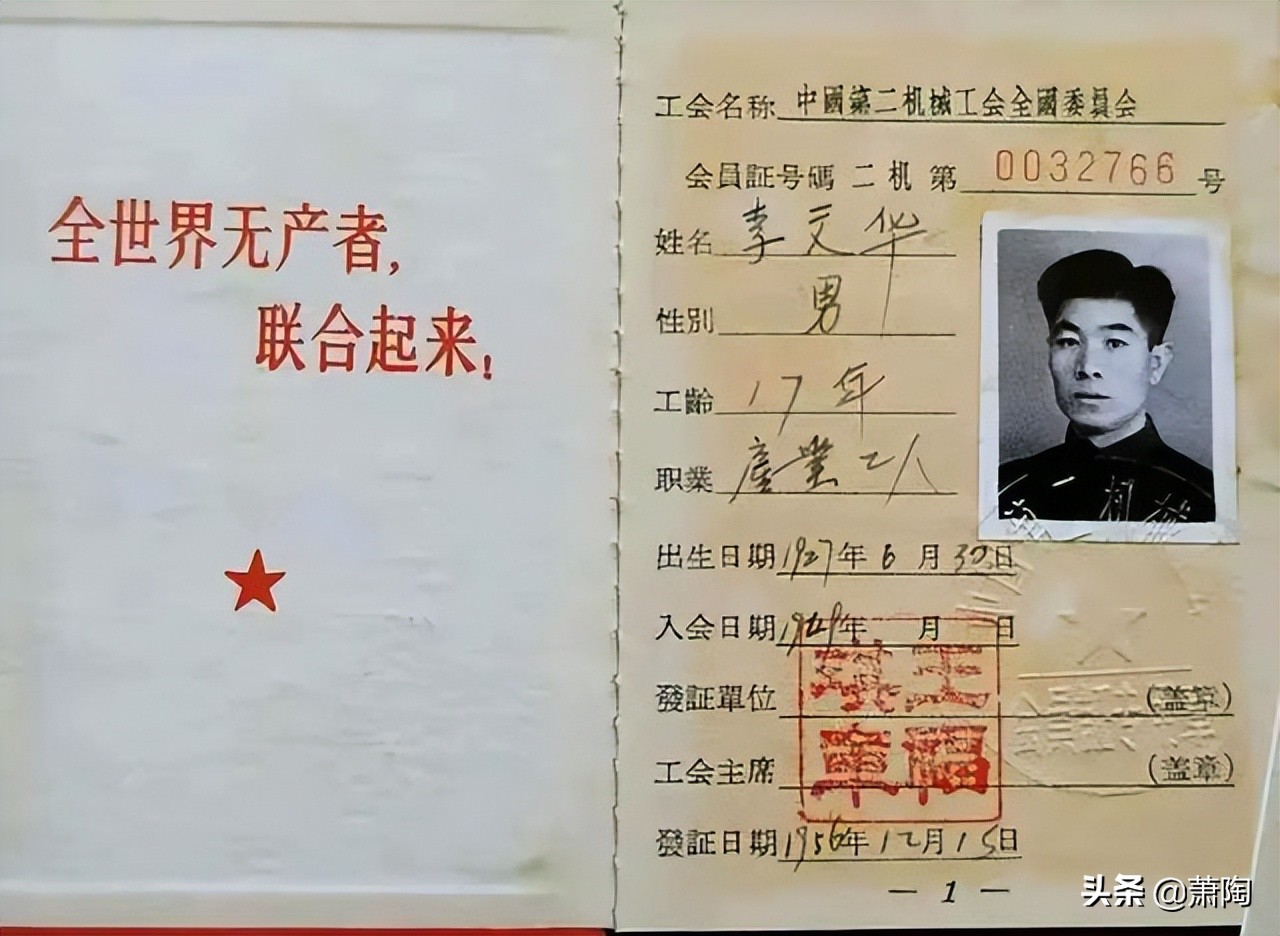 全世界无产者，
联合起来！
工会名称 中國第二机械工会全國委員会
会員証号碼 二机 第 0032766 号
姓名 李文华
性别 男
工齡 17年
职業 產業工人
出生日期 1927年 6 月 30日
入会日期 1949年 月 日
發証單位 (盖章)
工会主席 (盖章)
發証日期 1956年 12月 15日
— 1 —
头条 @萧陶